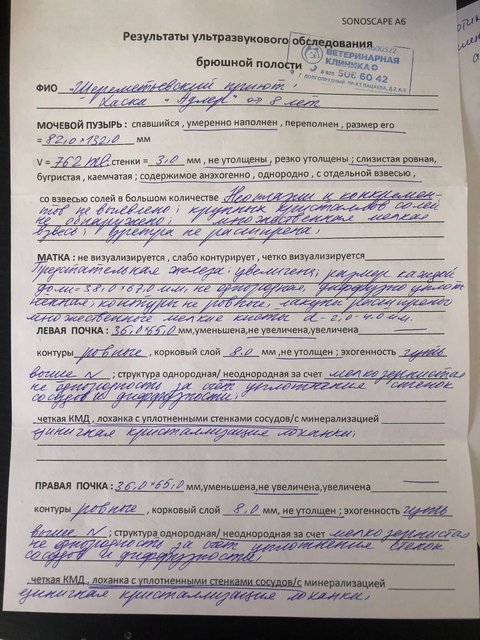 SONOSCAPE A6
Результаты ультразвукового обследования
брюшной полости
ВЕТЕРИНАРНАЯ
КЛИНИКА
8 925 506 60 42
Г. ДОЛГОПРУДНЫЙ ПР-КТ ПАЦАЕВА, Д.7, К.1
ФИО Шереметьевский приют,
Хаска "Адмер" от 8 лет
МОЧЕВОЙ ПУЗЫРЬ : спавшийся , умеренно наполнен , переполнен , размер его
= 82,0×132,0 мм
V = 762 мл. стенки = 3,0 мм , не утолщены , резко утолщены ; слизистая ровная,
бугристая , каемчатая ; содержимое анэхогенно , однородно , с отдельной взвесью ,
со взвесью солей в большом количестве Неотлазии и конкремен-
тов не выявлено; крупных кристаллов солей
не обнаружено, множественная мелкая
взвесь, уретра не расширена;
МАТКА : не визуализируется , слабо контурирует , четко визуализируется
Предстательная железа: увеличена, размер каждой
доли = 38,0×67,0 мм, не однородная, диффузно уплот-
ненная; контуры не ровные, расширены
множественные мелкие кисты d = 2,0-4,0 мм.
ЛЕВАЯ ПОЧКА : 36,0×65,0 мм,уменьшена,не увеличена,увеличена
контуры ровные , корковый слой 8,0 мм ,не утолщен ; эхогенность чуть
выше N ; структура однородная/ неоднородная за счет мелкозернистая
не однородность за счет уплотнения стенок
сосудов и диффузности;
четкая КМД , лоханка с уплотненными стенками сосудов/с минерализацией
единичная кристаллизация лоханки,
ПРАВАЯ ПОЧКА : 36,0×65,0 мм,уменьшена,не увеличена,увеличена
контуры ровные , корковый слой 8,0 мм, не утолщен ; эхогенность чуть
выше N ; структура однородная/ неоднородная за счет мелкозернистая
не однородность за счет уплотнения стенок
сосудов и диффузности;
четкая КМД , лоханка с уплотненными стенками сосудов/с минерализацией
единичная кристаллизация лоханки,